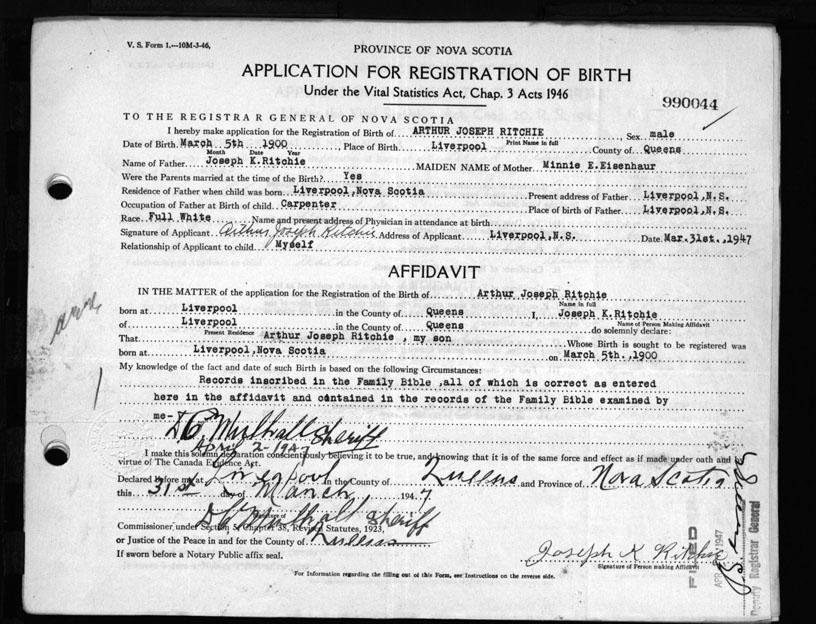 V. S. Form 1.—10M-3-46,
PROVINCE OF NOVA SCOTIA
APPLICATION FOR REGISTRATION OF BIRTH
Under the Vital Statistics Act, Chap. 3 Acts 1946
990044
TO THE REGISTRAR GENERAL OF NOVA SCOTIA
I hereby make application for the Registration of Birth of ARTHUR JOSEPH RITCHIE Sex male
Print Name in full
Date of Birth March 5th 1900 Place of Birth Liverpool County of Queens
Month Date Year
Name of Father Joseph K.Ritchie MAIDEN NAME of Mother Minnie E.Eisenhaur
Were the Parents married at the time of the Birth? Yes
Residence of Father when child was born Liverpool,Nova Scotia Present address of Father Liverpool,N.S.
Occupation of Father at Birth of child Carpenter Place of birth of Father Liverpool,N.S.
Race Full White Name and present address of Physician in attendance at birth
Signature of Applicant Arthur Joseph Ritchie Address of Applicant Liverpool,N.S. Date Mar.31st.,1947
Relationship of Applicant to child Myself
AFFIDAVIT
IN THE MATTER of the application for the Registration of the Birth of Arthur Joseph Ritchie
Name in full
born at Liverpool in the County of Queens I, Joseph K.Ritchie
Name of Person Making Affidavit
of Liverpool in the County of Queens do solemnly declare:
Present Residence
That Arthur Joseph Ritchie , my son Whose Birth is sought to be registered was
born at Liverpool,Nova Scotia on March 5th.,1900
My knowledge of the fact and date of such Birth is based on the following Circumstances:
Records inscribed in the Family Bible ,all of which is correct as entered
here in the affidavit and contained in the records of the Family Bible examined by
me-
Sheriff
April 2-1947
I make this solemn declaration conscientiously believing it to be true, and knowing that it is of the same force and effect as if made under oath and by
virtue of The Canada Evidence Act.
Declared before me at Liverpool in the County of Queens and Province of Nova Scotia
this 31st day of March 1947
Sheriff
Commissioner under Section 5, Chapter 38, Revised Statutes, 1923,
or Justice of the Peace in and for the County of Queens
If sworn before a Notary Public affix seal.
Joseph K Ritchie
Signature of Person making Affidavit
For Information regarding the filling out of this Form, see Instructions on the reverse side.
FILED
APR 1947
Deputy Registrar General